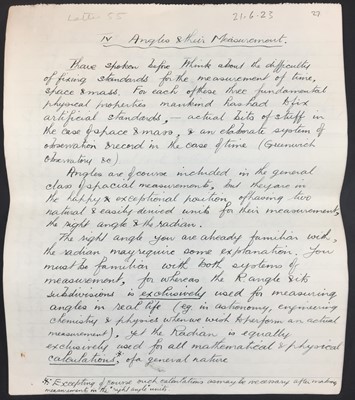 Letter 55 21-6-23 27
IV Angles & their Measurement.
I have spoken before I think about the difficulties
of fixing standards for the measurement of time,
space & mass. For each of these three fundamental
physical properties mankind has had to fix
artificial standards, — actual bits of stuff in
the case of space & mass, & an elaborate system of
observation & record in the case of time (Greenwich
observatory &c)
Angles are of course included in the general
class of spacial measurements, but they are in
the happy & exceptional position of having two
natural & easily derived units for their measurement,
the right angle & the radian.
The right angle you are already familiar with,
the radian may require some explanation. You
must be familiar with both systems of
measurement, for whereas the R. angle & its
subdivisions is exclusively used for measuring
angles in real life (eg. in astronomy, engineering
chemistry & physics when we wish to perform an actual
measurement), yet the Radian is equally
exclusively used for all mathematical & physical
calculations,* of a general nature
* Excepting of course such calculations as may be necessary after making
measurements in the "right angle" units.